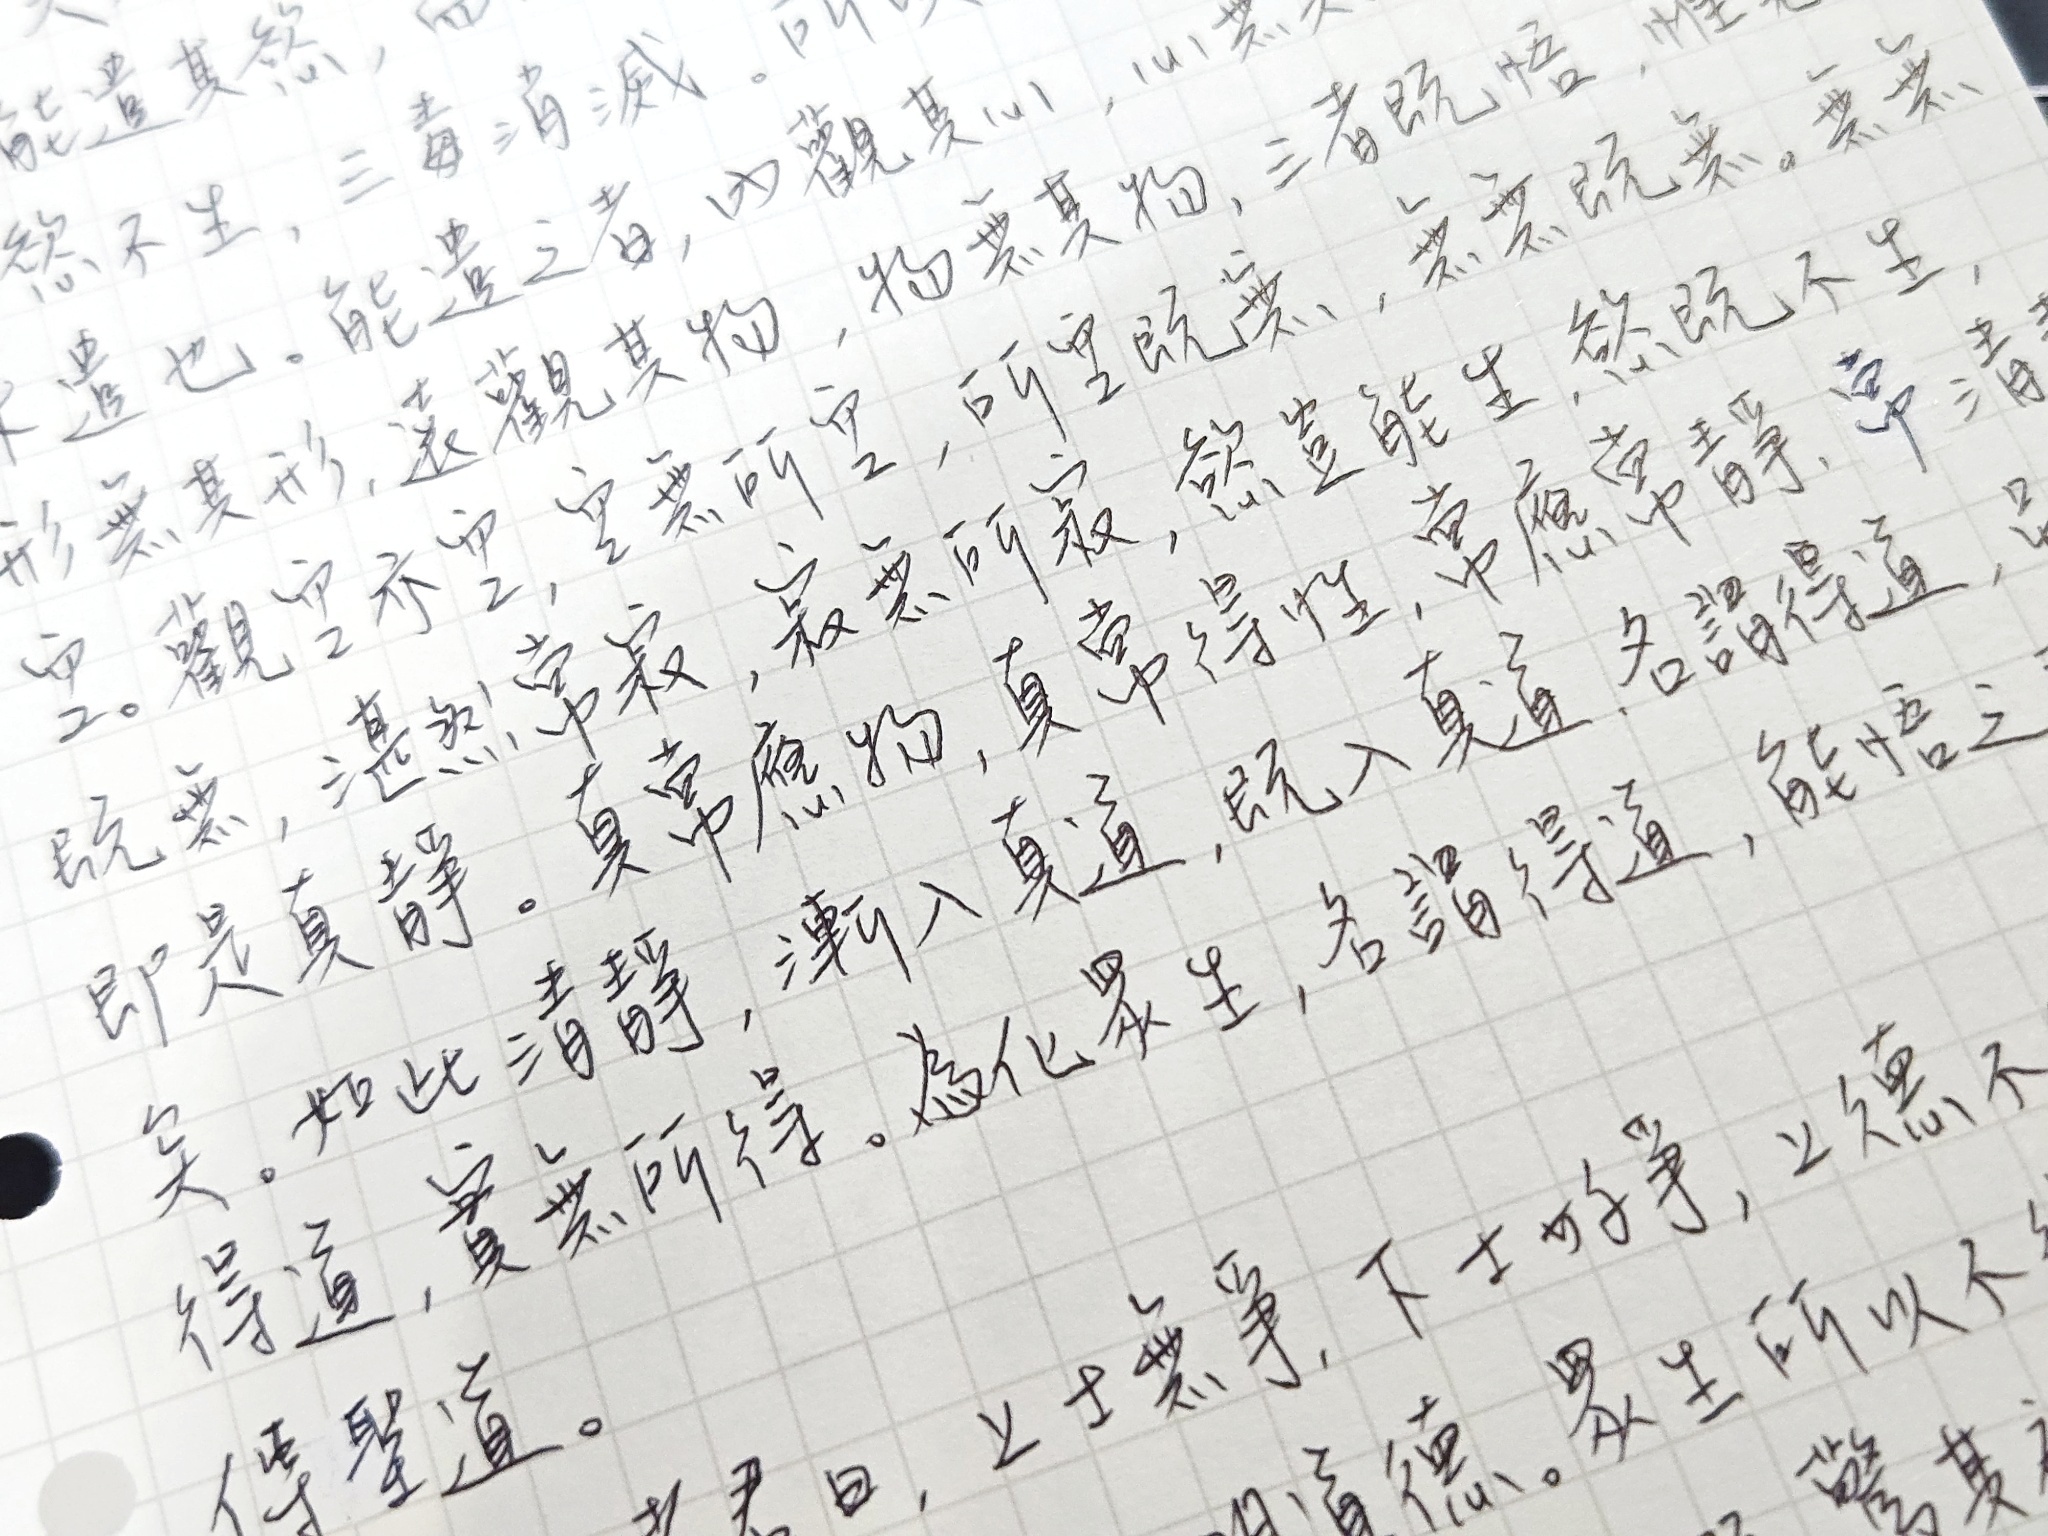 能遣其慾,
慾不生,三毒消滅。所以
遣也。能遣之者,內觀其心,心無其
形無其形,遠觀其物,物無其物,三者既悟,惟見
空。觀空亦空,空無所空,所空既無,無無既無。無無
既無,湛然常寂,寂無所寂,慾豈能生,慾既不生,
即是真靜。真常應物,真常得性,常應常靜,常清靜
矣。如此清靜,漸入真道,既入真道,名謂得道,
得道,實無所得。為化眾生,名謂得道,能悟之
傳聖道。
老君曰,上士無爭,下士好爭,上德不
道德。眾生所以不
驚其